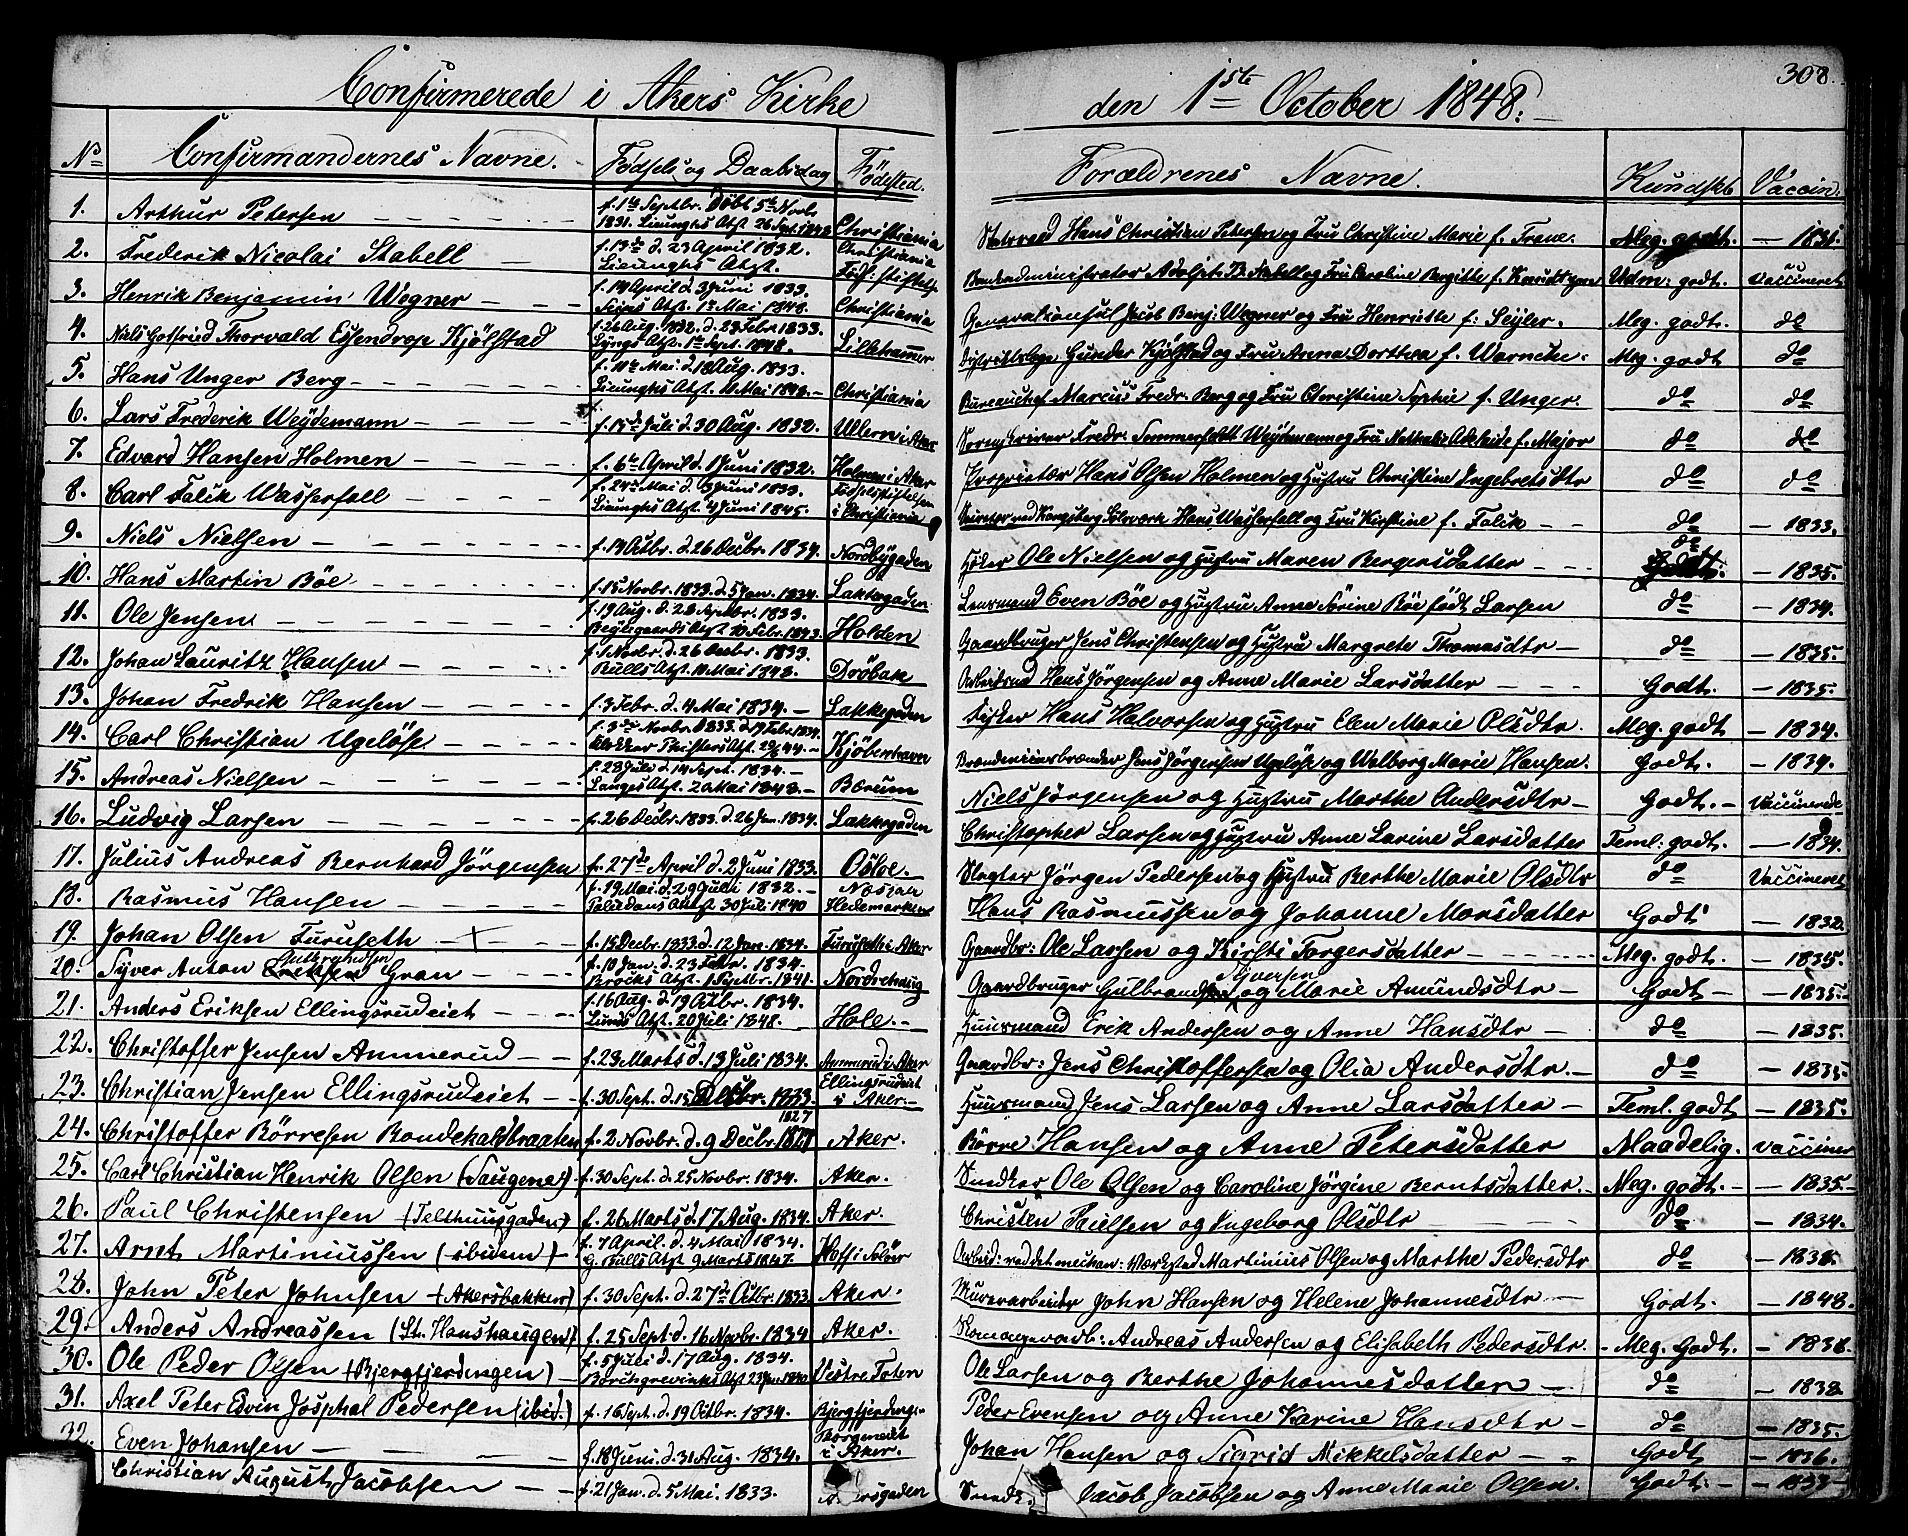 Confirmerede i Akers Kirke den 1ste October 1848.
308.
No Confirmandernes Navne. Fødsels og Daabsdag Fødested. Forældrenes Navne. Kundskb Vaccin:
1. Arthur Petersen f. 1ste Septbr. Døbt 5te Novb. 1831. Lieunghs Atst. 26 Sept. 1848 Christiania Statsraad Hans Christian Petersen og Fru Christine Marie f. Trane. Meg. godt. 1831.
2. Frederik Nicolai Stabell f. 13de d. 23 April 1832. Lieunghs Atst. Christiania Adolph B. Stabell og Fru Caroline Bergitte f. Udm: godt. Vaccineret
3. Henrik Benjamin Wegner f. 14 April d. 3 Juni 1833. Atst. 1ste Mai 1848. Christiania Generalconsul Jacob Benj: Wegner og Fru Henriette f: Seyler. Meg. godt. do
4. Niels Gotfried Thorvald Essendrop Kjölstad f. 26 Aug. 1832. d. 23 Febr 1833. Atst. 1ste Sept. 1848. Lillehammer Districtslæge Gunder Kjölstad og Fru Anna Dorthea f. Warncke. Meg. godt do
5. Hans Unger Berg f. 11te Mai d. 18 Aug. 1833. Lieunghs Atst. 11 Mai 1848. Christiania Bureauchef Marcus Fredr. Berg og Fru Christine Sophie f. Unger. do do
6. Lars Frederik Weydemann f. 15de Juli d. 30 Aug. 1832. Ullern i Aker Sorenskriver Fredr: Sommerfeldt Weydemann og Fru Nathalie f. Major do do
7. Edvard Hansen Holmen f. 6te April d. 1 Juni 1832. Holmen i Aker Proprietær Hans Olsen Holmen og Hustru Christine Ingebretsdtr do do
8. Carl Falck Wasserfall f. 24de Mai d. 3 Juni 1833. Lieunghs Atst. 4 Juni 1845. Fødselsstiftelsen i Christiania Director ved Kongsberg Sölvværk Hans Wasserfall og Fru Kirstine f. Falck do 1833.
9. Niels Nielsen f. 14 Octbr. d. 26 Decbr. 1834. Nordbygaden Höker Ole Nielsen og Hustru Maren Bergersdatter do 1835.
10. Hans Martin Böe f. 15 Novbr. 1833. d. 5 Jan. 1834. Lakkegaden Lensmand Even Böe og Hustru Anne Sörine Böe født Larsen do 1834.
11. Ole Jensen f. 19 Aug. d. 28 Septbr. 1833. Atst 10 Febr. 1843. Holden Gaardbruger Jens Christensen og Hustru Margrete Thomasdtr do 1835.
12. Johan Lauritz Hansen f. 1 Novbr. d. 26 Decbr. 1833. Bulls Atst. 11 Mai 1848. Dröbak Arbeidsmd Hans Jörgensen og Anne Marie Larsdatter Godt. 1835.
13. Johan Fredrik Hansen f. 3 Febr. d. 4 Mai 1834. Lakkegaden Fisker Hans Halvorsen og Hustru Elen Marie Olsdtr. Meg. godt 1834.
14. Carl Christian Ugelöse f. 3die Novbr. 1833. d. 19 Febr 1834. Atst. 28/6 44. Kjöbenhavn Brændeviinsbrænder Jens Jörgensen Ugelöse og Walborg Marie Hansen. Godt. 1834.
15. Andreas Nielsen f. 28 Juli d. 14 Sept. 1834. Langes Atst. 20 Mai 1848. Bærum Niels Jörgensen og Hustru Marthe Andersdtr Godt. Vaccinerede
16. Ludvig Larsen f. 26 Decbr. 1833. d. 26 Jan. 1834. Lakkegaden Christopher Larsen og Hustru Anne Larine Larsdatter Teml: godt. 1834.
17. Julius Andreas Bernhard Jörgensen f. 27de April d. 2 Juni 1833. Osloe. Slagter Jörgen Pedersen og Hustru Berthe Marie Olsdtr do Vaccineret
18. Rasmus Hansen f. 19 Mai d. 29 Juli 1832. Atst 30 Juli 1840 Hedemarken Hans Rasmussen og Johanne Monsdatter Godt 1832.
19. Johan Olsen Furuseth f. 15 Decbr. 1833. d. 12 Jan. 1834. Furuseth i Aker Gaardbr: Ole Larsen og Kirsti Torgersdatter Meg. godt. 1835.
20. Syver Anton Gulbrandsen Gran f. 10 Jan. d. 23 Febr. 1834. Brocks Atst. 1 Septbr. 1841. Norderhaug Gaardbruger Gulbrand Syversen og Marie Amundsdtr Godt 1835.
21. Anders Eriksen Ellingsrudeiet f. 16 Aug. d. 19 Octbr. 1834. Lunds Atst. 20 Juli 1848. Hole. Huusmand Erik Andersen og Anne Hansdtr do 1835.
22. Christoffer Jensen Ammerud f. 23 Marts d. 13 Juli 1834. Ammerud i Aker Gaardbr: Jens Christoffersen og Olia Andersdtr. do 1835
23. Christian Jensen Ellingsrudeiet f. 30 Sept. d. 15 Decbr. 1833. Ellingsrudeiet i Aker. Huusmand Jens Larsen og Anne Larsdatter Teml. godt 1835.
24. Christoffer Börresen Rondekolsbraaten f. 2 Novbr. d. 9 Decbr. 1827 Aker. Börre Hansen og Anne Petersdatter Maadelig. Vacciner
25. Carl Christian Henrik Olsen (Saugene) f. 30 Sept. d. 25 Novbr. 1834. Aker. Snedker Ole Olsen og Caroline Jörgine Berntsdatter. Meg. godt. 1835.
26. Paul Christensen (Telthuusgaden) f. 26 Marts d. 17 Aug. 1834. Aker. Christen Paulsen og Ingeborg Olsdtr do 1834.
27. Arnt Martiniussen (ibidem) f. 7 April. d. 4 Mai 1834. G. Bulls Atst. 9 Marts 1847. Hoff i Solöer Arbeid: ved det mechan: Værksted Martinius Olsen og Marthe Pedersdtr do 1835.
28. John Peter Johnsen (Akersbakken) f. 30 Sept. d. 27de Octbr. 1833 Aker. Murerarbeider John Hansen og Helene Johannesdtr Godt. 1848.
29. Anders Andreassen (St. Hanshaugen) f. 25 Sept. d. 16 Novbr. 1834 Aker. Andreas Andersen og Elisabeth Pedersdtr. Meg. Godt. 1836.
30. Ole Peder Olsen (Bjergfjerdingen) f. 5 Juli d. 17 Aug. 1834. Borchgrevinks Atst 23 Jan. 1840. Vestre Toten Ole Larsen og Berthe Johannesdatter do 1838
31. Axel Peter Edvin Josphal Pedersen (ibid.) f. 16 Sept. d. 19 Octbr. 1834. Bjergfjerding: Peder Evensen og Anne Karine Hansdtr do 1835.
32. Even Johansen f. 18 Juni d. 31 Aug. 1834. i Aker. Johan Hansen og Sigrid Mikkelsdatter Godt 1836.
Christian August Jacobsen f. 21 Jan. d. 5 Mai. 1833. Jacob Jacobsen og Anne Marie Olsen. Godt. 1837